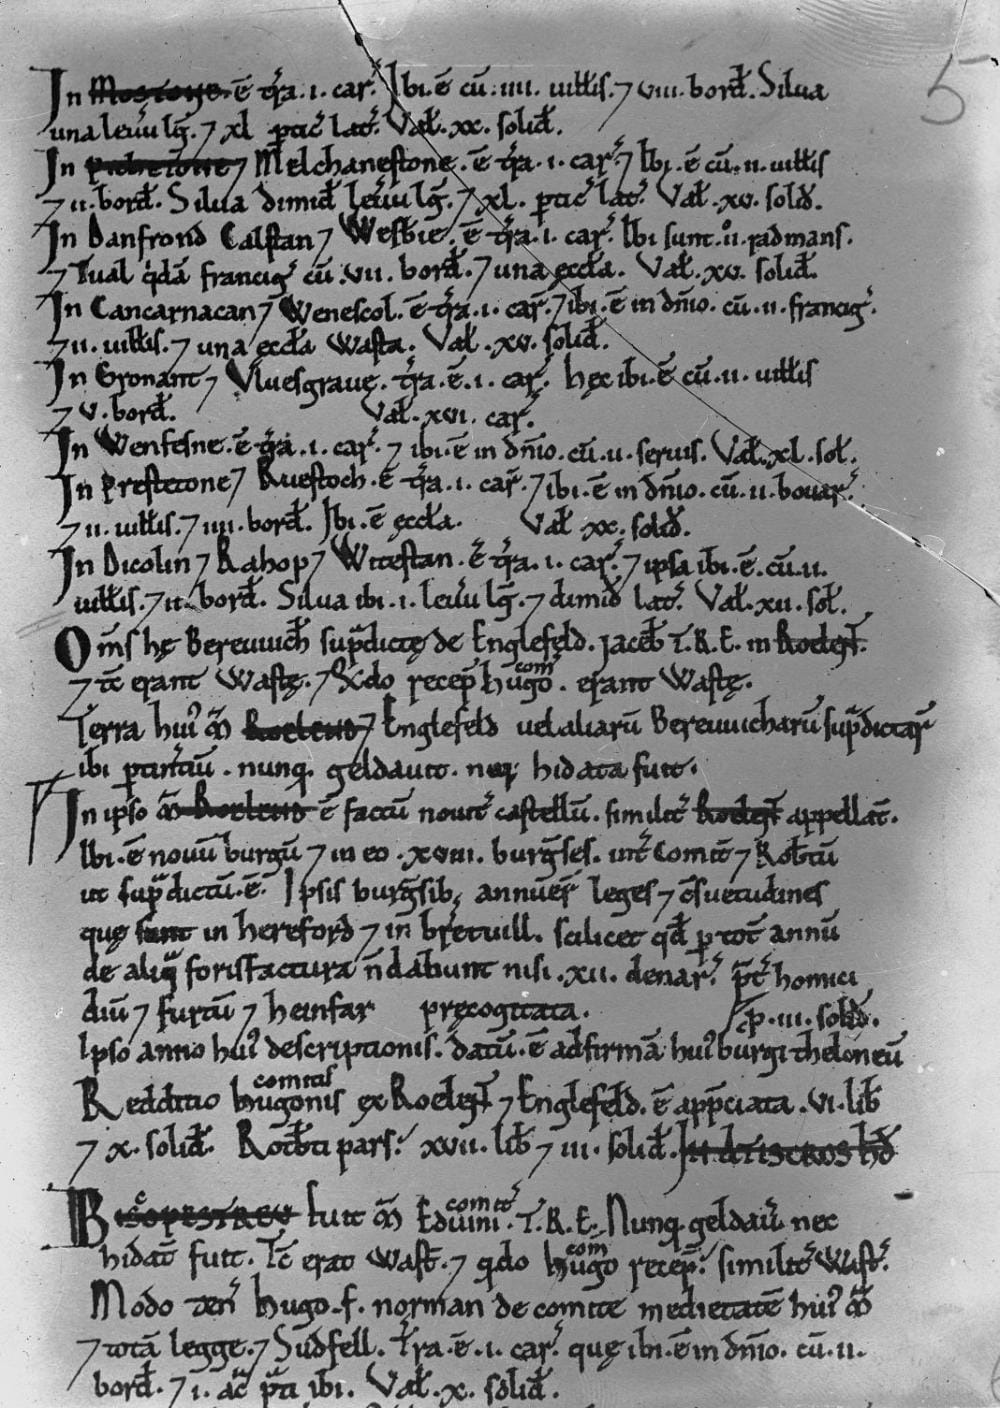 5
In Mostone. ē t̄ra. i. car̄. Ibi. ē cū. iiii. uiłłis. ⁊ viii. borđ. Silua
una leuū lḡ. ⁊ xl ptic̄ lat̄. Vał. xx. soliđ.
In Picbetone ⁊ Melchanestone. ē t̄ra. i. car̄. ⁊ Ibi. ē cū. ii. uiłłis
⁊ ii. borđ. Silua dimiđ leuū lḡ. ⁊ xl. ptic̄ lat̄. Vał. xv. soliđ.
In Danfrond Calstan ⁊ Wesbie. ē t̄ra. i. car̄. Ibi sunt. ii. radmans.
⁊ Tual q̄dā francig̃ cū. vii. borđ. ⁊ una ęccła. Vał. xv. soliđ.
In Cancarnacan ⁊ Wenescol. ē t̄ra. i. car̄. ⁊ ibi. ē in dn̄io. cū. ii. francig̃.
⁊ ii. uiłłis. ⁊ una ęccła wasta. Vał. xv. soliđ.
In Gronant ⁊ Vluesgraue. t̄ra. ē. i. car̄. hęc ibi. ē cū. ii. uiłłis
⁊ v. borđ. Vał. xvi. car̄.
In Wenfesne. ē t̄ra. i. car̄. ⁊ ibi. ē in dn̄io. cū. ii. seruis. Vał. xl. soł.
In Prestetone ⁊ Ruestoch. ē t̄ra. i. car̄. ⁊ ibi. ē in dn̄io. cū. ii. bouar̄.
⁊ ii. uiłłis. ⁊ iiii. borđ. Ibi. ē ęccła. Vał xx. soliđ.
In Dicolin ⁊ Rahop ⁊ Witestan. ē t̄ra. i. car̄. ⁊ ipsa ibi. ē. cū. ii.
uiłłis. ⁊ ii. borđ. Silua ibi. i. leuū lḡ. ⁊ dimiđ lat̄. Vał. xii. soł.
Om̄s hę Bereuuich sup̄dictę de Englefeld. iaceb̄ T.R.E. in Roelent.
⁊ tc̄ erant Wastę. ⁊ q̄do recep̄ hugo com̄. erant Wastę.
Terra hui᷒ m̄ Roeleud ⁊ Englefeld uel aliarū Bereuuicharū sup̄dictar̄
ibi ptin̄tiū. nunq̄ geldauit. neq; hidata fuit.
In ipso m̄ Roelend ē factū nouit̄ castellū. similit̄ Roelent appellat̄.
Ibi. ē nouū burgū ⁊ in eo. xviii. burḡses. int̄ Comit̄ ⁊ Rotb̄tū
ut sup̄dictū. ē. Ipsis burḡsib; annuer̄ leges ⁊ c̄suetudines
quę sunt in hereford ⁊ in bretuill. scilicet qđ p tot̄ annū
de aliq̄ forisfactura n̄ dabunt nisi. xii. denar̄. p̄t̄ homici
diū ⁊ furtū ⁊ heinfar precogitata. p. iii. soliđ.
Ipso anno hui᷒ descriptionis. datū. ē ad firmā hui᷒ burgi theloneū
Redditio hugonis comitis ex Roelent ⁊ Englefeld. ē app̄ciata. vi. lib̄
⁊ x. soliđ. Rotb̄ti pars. xvii. lib̄ ⁊ iii. soliđ. In Atiscros hđ
Biscopestreu tuit m̄ Eduini comit̄. T.R.E. Nunq̄ geldau̅ nec
hidat̄ fuit. Tc̄ erat wast̄. ⁊ q̄do hugo com̄ recep̄. similit̄ Wast̄.
Modo ten̄ hugo. f. norman de comite medietatē hui᷒ m̄
⁊ totā legge. ⁊ Sudfell. t̄ra. ē. i. car̄. quę ibi. ē in dn̄io. cū. ii.
borđ. ⁊ i. ac̄ p̄ti ibi. Vał. x. soliđ.